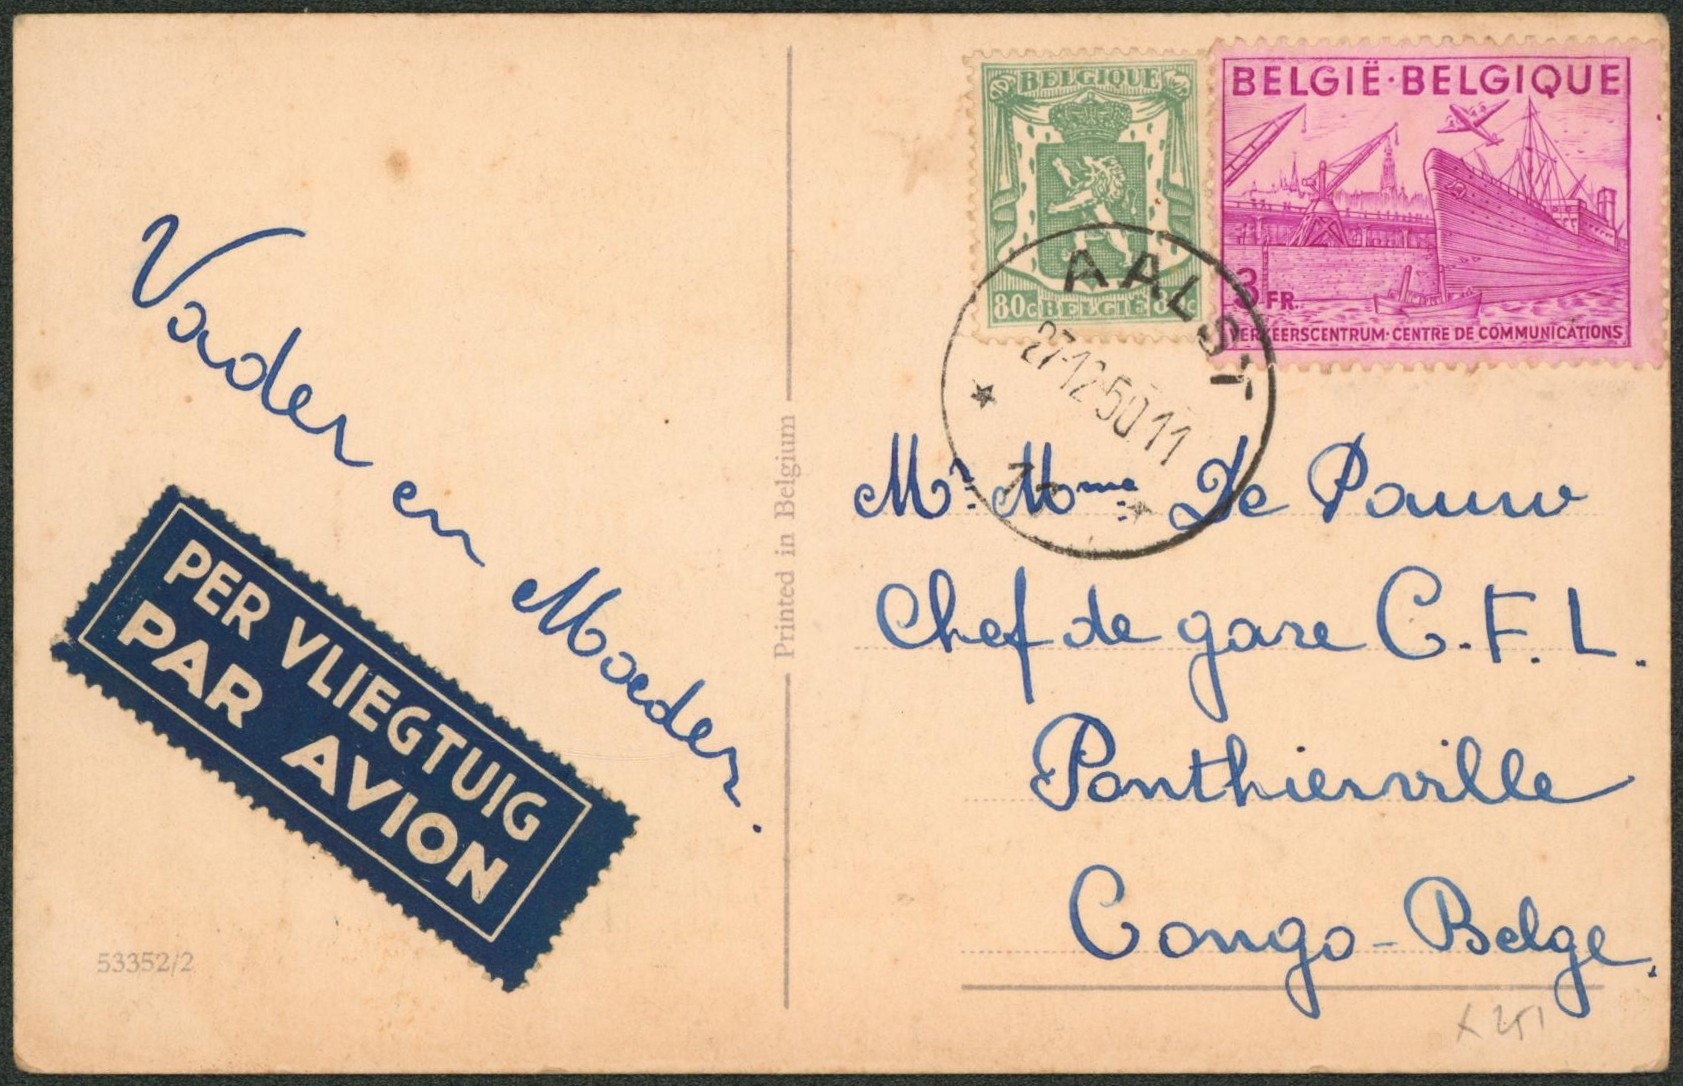 Vader en Moeder.
PER VLIEGTUIG
PAR AVION
53352/2
Printed in Belgium
BELGIQUE
80c BELGIË 8 c
BELGIË·BELGIQUE
3 FR.
VERKEERSCENTRUM·CENTRE DE COMMUNICATIONS
AALST
27-12-50 11
Mr. Mme De Pauw
Chef de gare C.F.L.
Ponthierville
Congo-Belge.